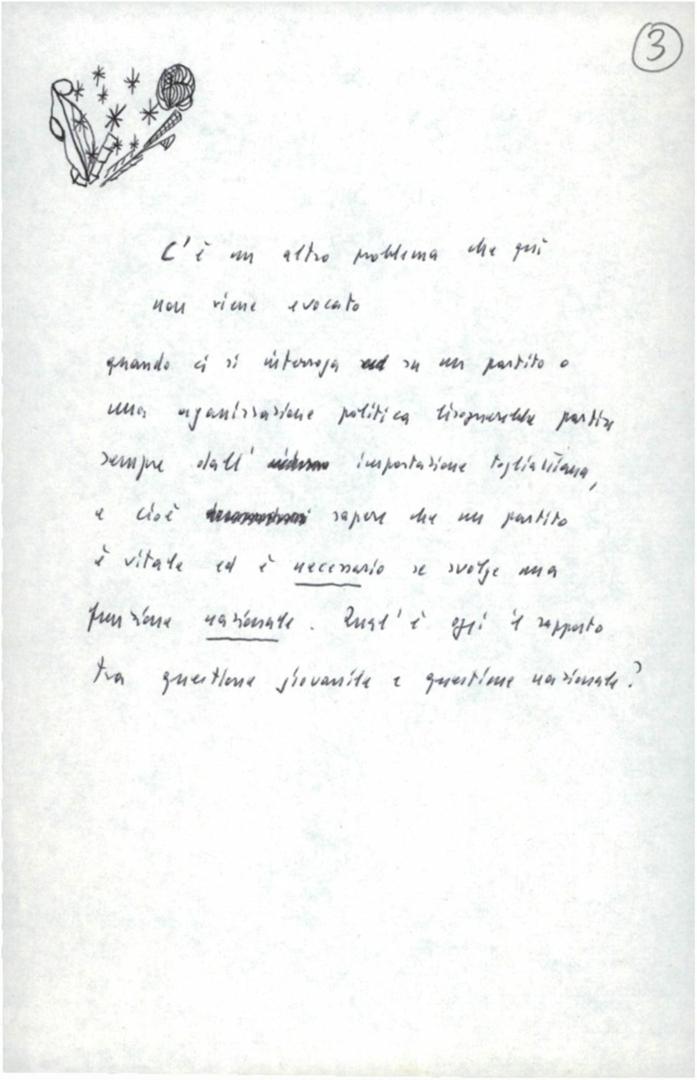 3
C'è un altro problema che qui
non viene evocato
quando ci si interroga su un partito o
una organizzazione politica bisognerebbe partire
sempre dall' impostazione togliattiana,
e cioè sapere che un partito
è vitale ed è necessario se svolge una
funzione nazionale. Qual'è oggi il rapporto
tra questione giovanile e questione nazionale?